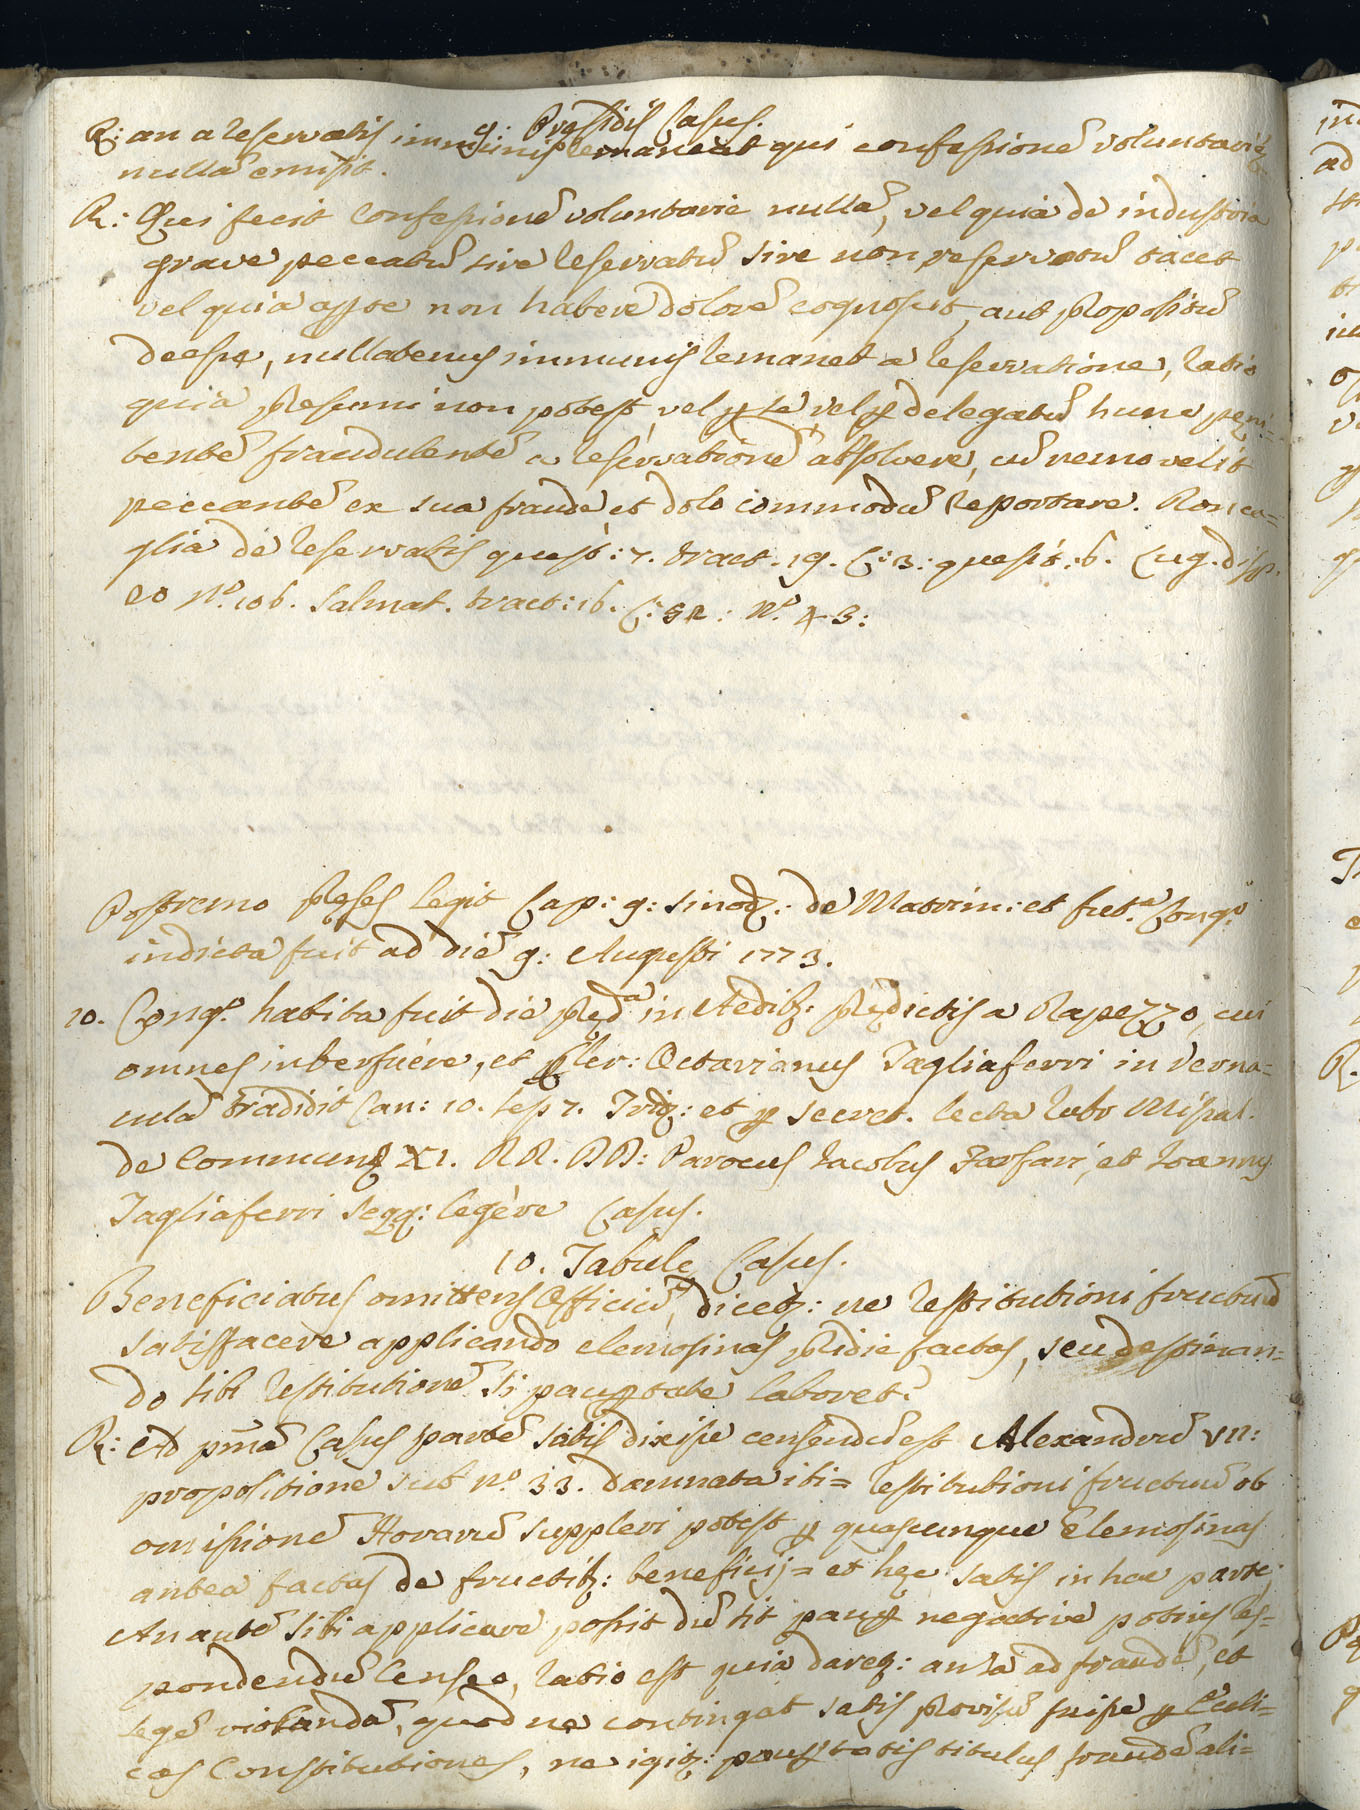 9: Præsidis Casus.
Q: an a reservatis immunis remaneat qui confessionē voluntariæ
nullā emisit.
R: Qui fecit Confessionē voluntarie nullā, vel quia de industria
grave peccatū sive reservatū sive non reservatū tacet
vel quia apte non habere dolorē cognoscit, aut propositū
deesse, nullatenus immunis remanet a reservatione, ratio
quia præsumi non potest, vel ꝑ se, vel ꝑ delegatū hunc pæni=
tentē fraudulentē a reservationē absolvere, cū nemo velit
peccantē ex sua fraude et dolo commodū reportare. Ronca=
glia de reservatis quæst: 7. tract. 19. C: 3: quæsit: 6. Lug. disp.
20 N.º 106. Salmat. tract: 16. C: N.º 43:
Postremo Præses legit Cap: 9: Sinodi: de Matrim: et fut.ª Cong.º
indicta fuit ad diē 9: Augusti 1773.
10. Cong.º habita fuit die præd.ª in Aedib: prædictis a Rapezzo, cui
omnes interfuere, et Cler: Octavianus Tagliaferri in verna=
culā tradidit Can: 10. sess 7. Trid: et ꝑ secret. lecta rubr Missal.
de Commune XI. RR. DD: Parocus Iacobus Farfari, et Ioannes
Tagliaferri seqq: legère Casus.
10. Tabulæ Casus.
Beneficiatus omittens Officiū, diceb: ne restitutioni fructuū
satisfacere applicando elemosinas pridie factas, seu destinan=
do sibi restitutionē si pauꝑtate laboret?
R: Ad p̄mā Casus partē satis dixisse censendū est Alexandrū VII:
propositione sub n.º 33. damnata ibi= restitutioni fructuū ob
omissionē Horarū suppleri potest ꝑ quascunque Elemosinas
antea factas de fructib: beneficij= et hæc satis in hac parte;
An autē sibi applicare possit dū sit pauꝑ negative potius res=
pondendū censeo, ratio est quia dareb: ansa ad fraudē, et
legē violandā, quod ne contingat satis provisū fuisse ꝑ
cas Constitutiones, ne igit: pauꝑtatis titulus fraudē ali=